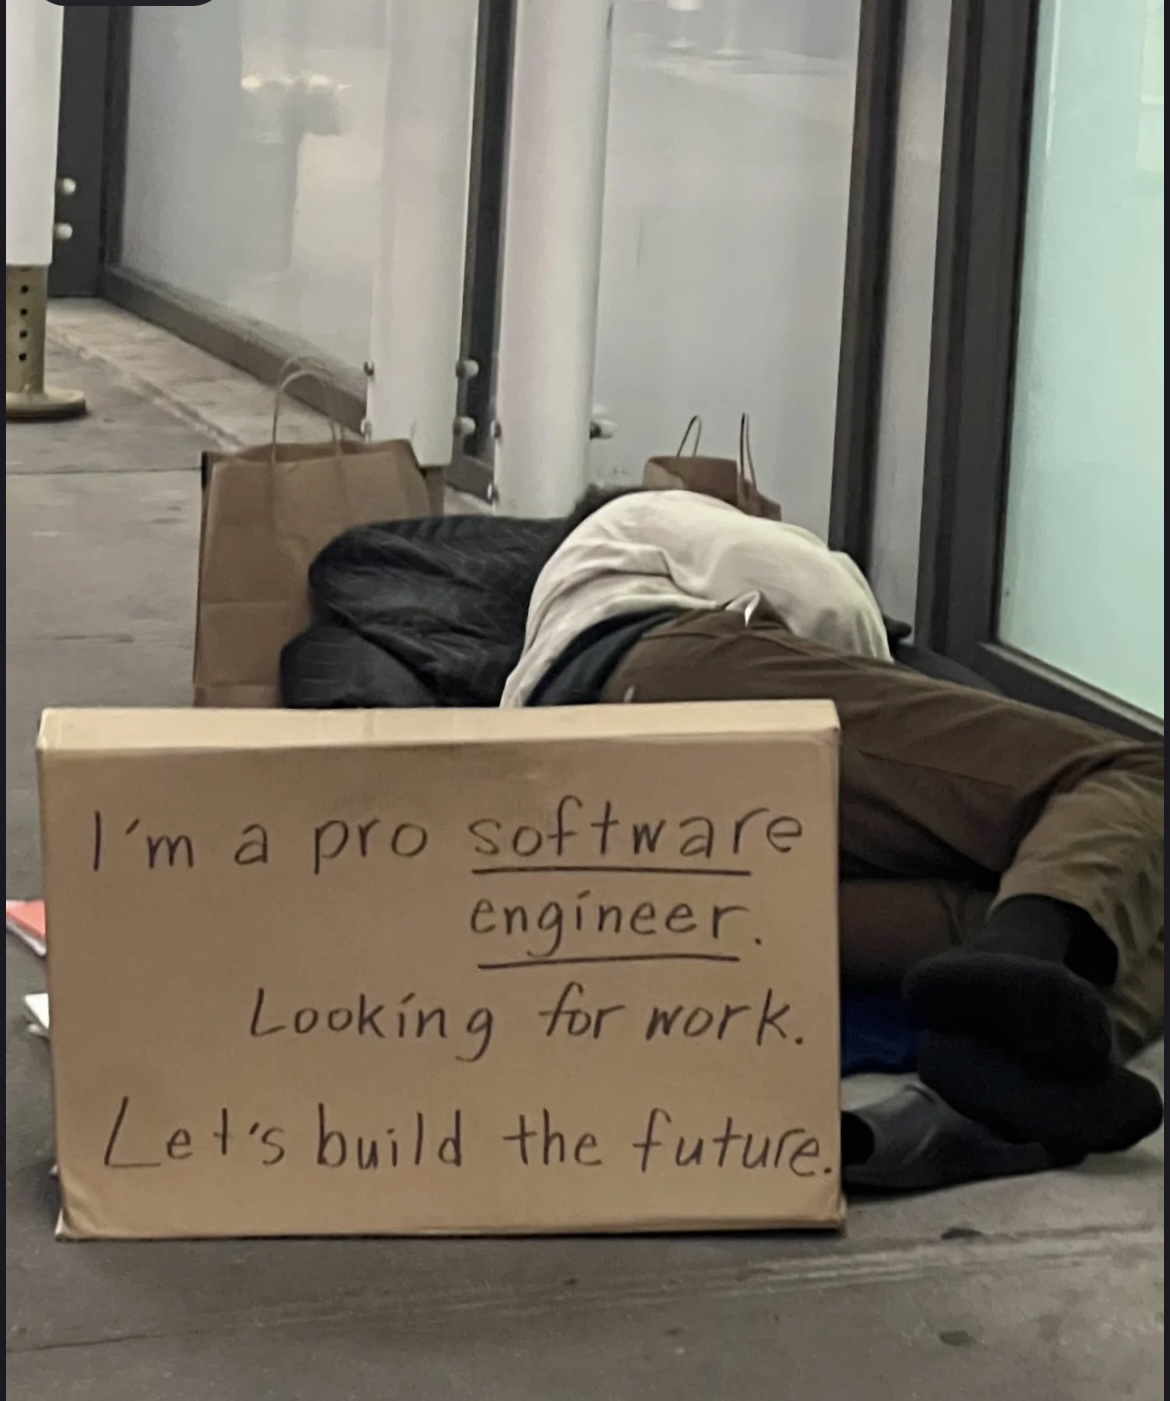 I'm a pro software
engineer.
Looking for work.
Let's build the future.